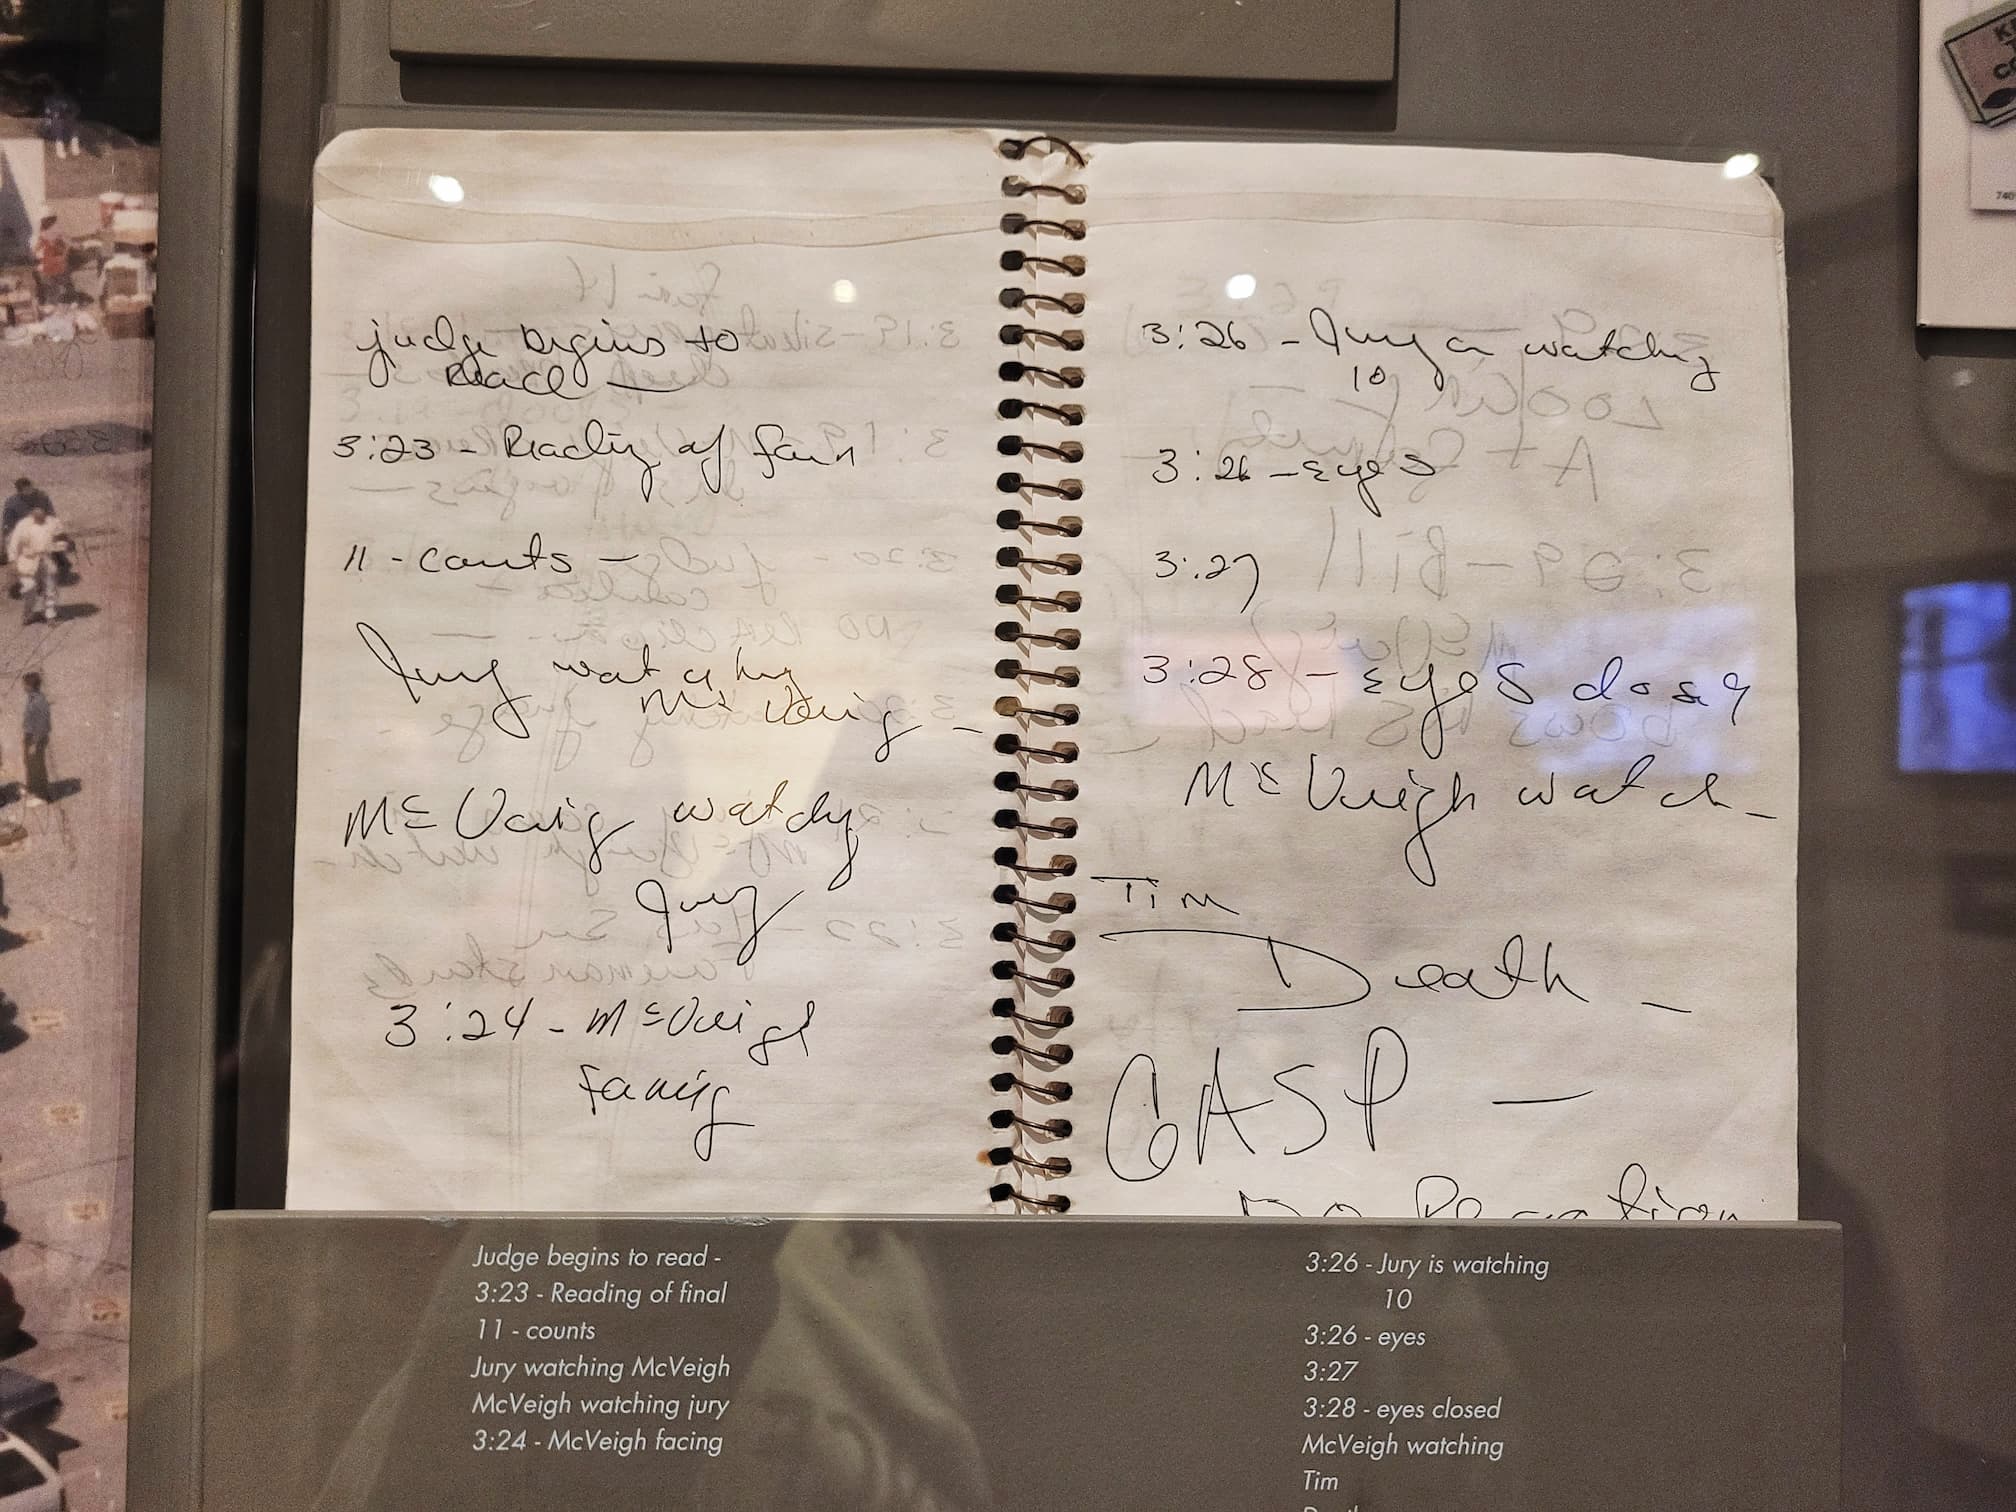 judge begins to
Read —
3:23 - Reading of
11 - counts —
Jury watching
McVeig -
McVeig watchg
Jury
3:24 - McVeigh
facing
3:26 - Jury watching
10
3:26 - eyes
3:27
3:28 - eyes
McVeigh watch -
Tim
Death -
GASP —
no Reaction
Judge begins to read -
3:23 - Reading of final
11 - counts
Jury watching McVeigh
McVeigh watching jury
3:24 - McVeigh facing
3:26 - Jury is watching
10
3:26 - eyes
3:27
3:28 - eyes closed
McVeigh watching
Tim
740